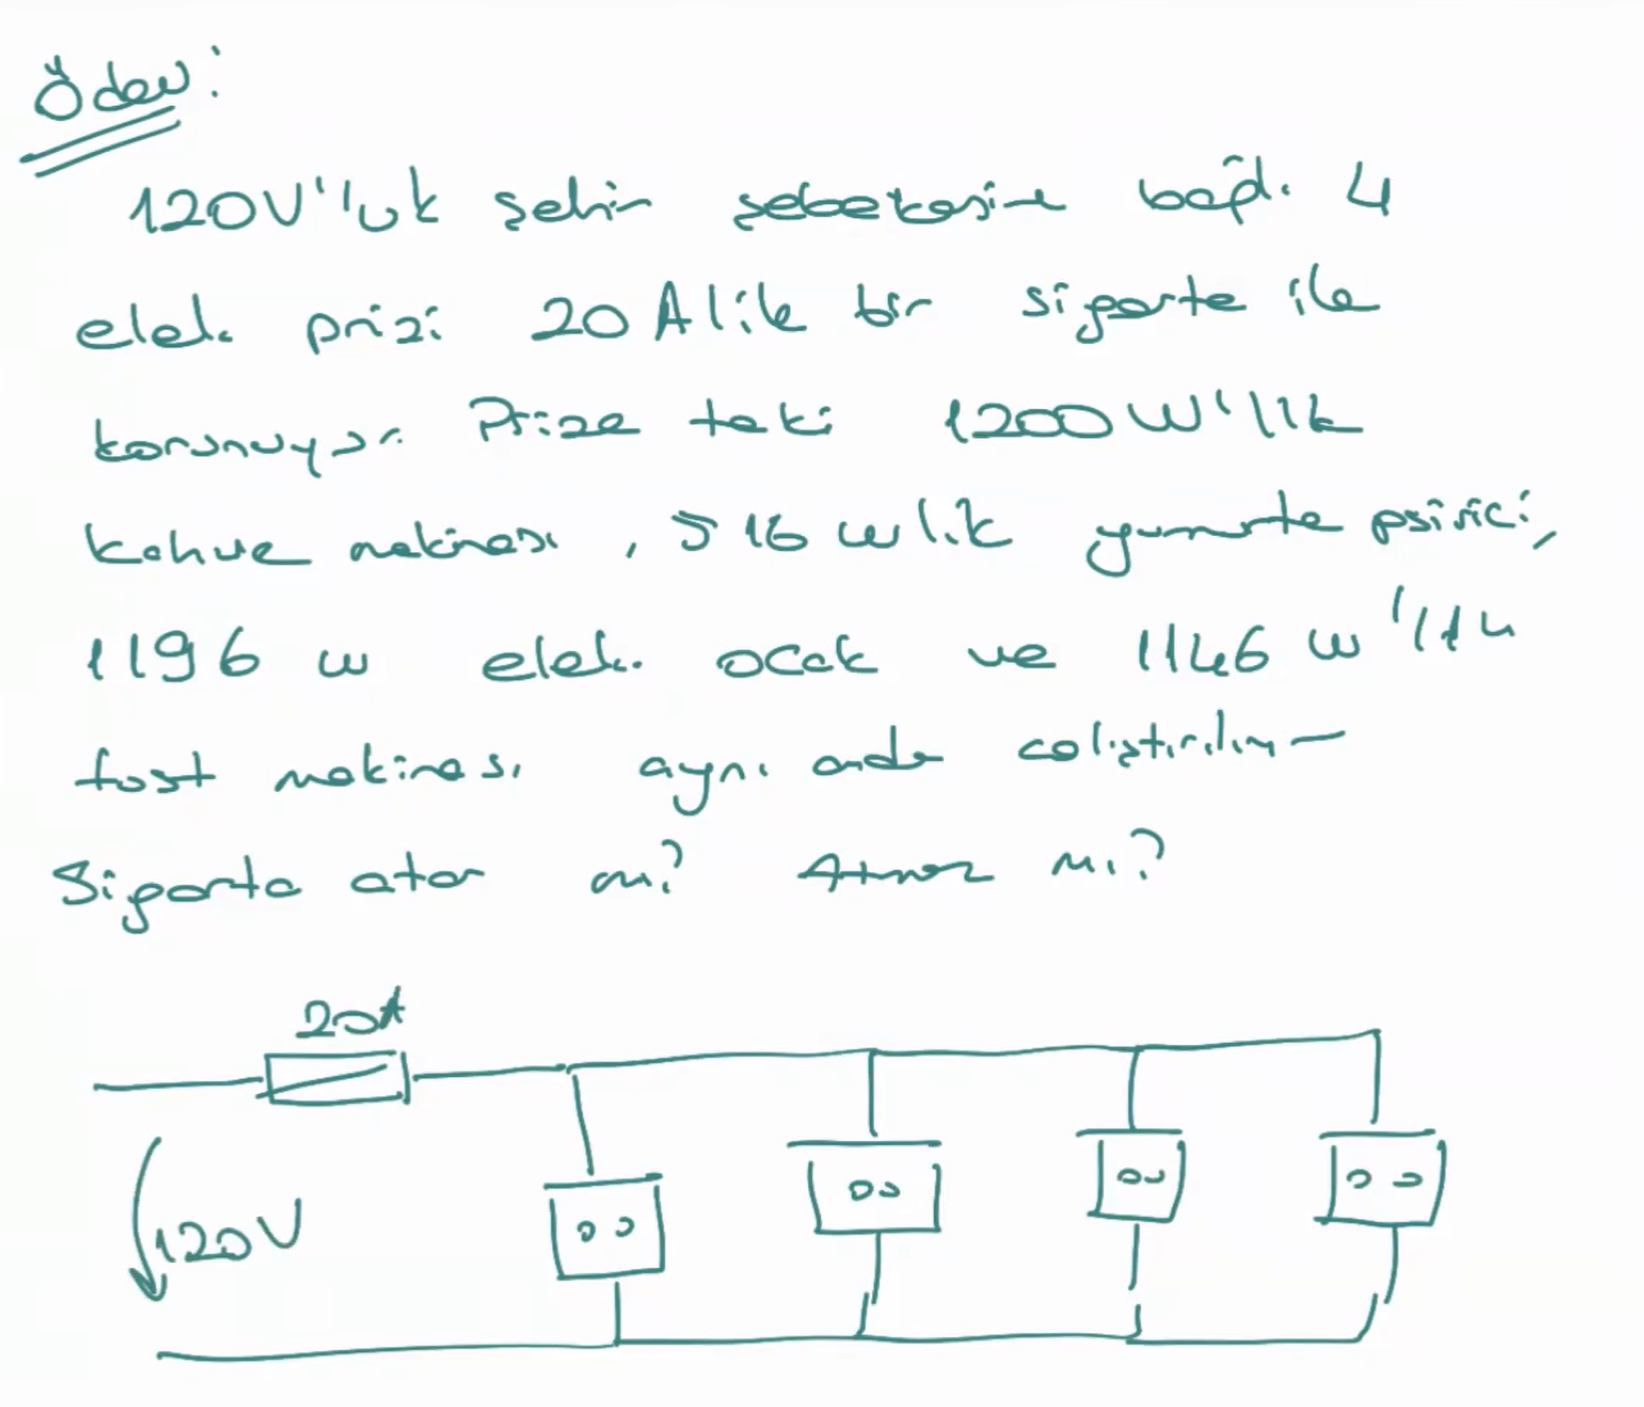 Ödev:
120V'luk şehir şebekesine bağlı 4
elek. prizi 20 A lik bir sigorta ile
korunuyor. Prize taki 1200 W'lık
kahve makinası, 516 w lik yumurta pişirici,
1196 w elek. ocak ve 1146 w'lık
tost makinası aynı anda çalıştırılıyor
Sigorta atar mı? Atmaz mı?
20A
120V